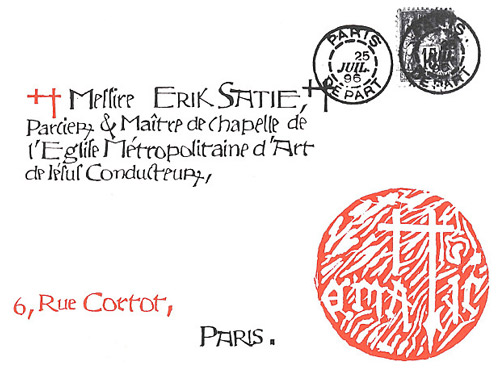 PARIS
25
JUIL.
96
DEPART
PARIS.
DEPART
Meſſire ERIK SATIE,
Parcier & Maître de chapelle de
l'Egliſe Métropolitaine d'Art
de Iéſus Conducteur,
6, Rue Cortot,
PARIS.